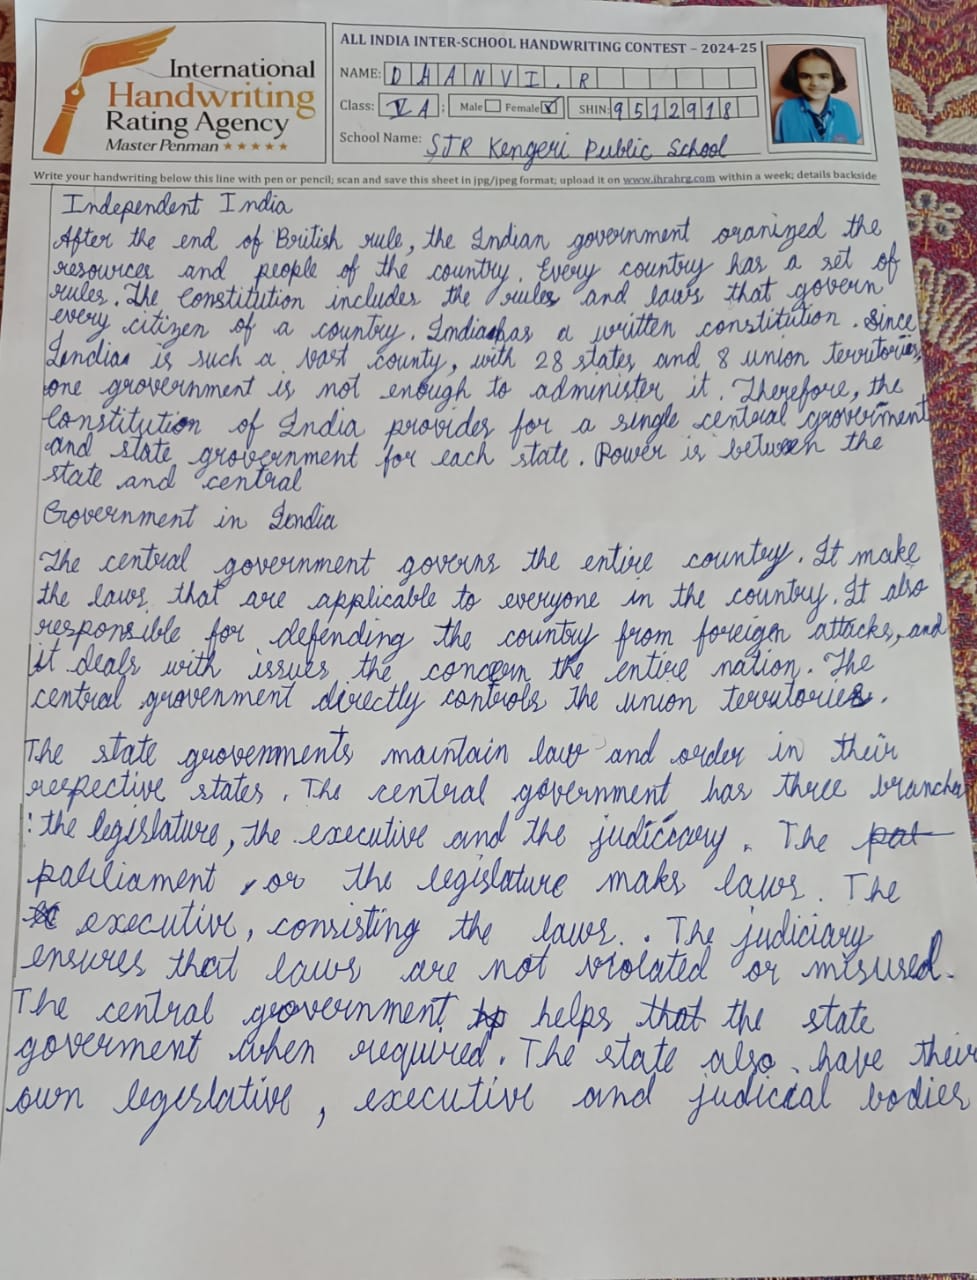 International
Handwriting
Rating Agency
Master Penman ★★★★★
ALL INDIA INTER-SCHOOL HANDWRITING CONTEST – 2024-25
NAME: DHANVI.R
Class: V A; Male Female SHIN: 9512918
School Name: SJR Kengeri Public School
Write your handwriting below this line with pen or pencil; scan and save this sheet in jpg/jpeg format; upload it on www.ihrahrg.com within a week; details backside
Independent India
After the end of British rule, the Indian government oranized the
resources and people of the country. Every country has a set of
rules. The Constitution includes the rules and laws that govern
every citizen of a country. India has a written constitution. Since
India is such a vast county, with 28 states and 8 union territories,
one government is not enough to administer it. Therefore, the
Constitution of India provides for a single central goverment
and state government for each state. Power is between the
state and central
Government in India
The central government governs the entire country. It make
the laws that are applicable to everyone in the country. It also
responsible for defending the country from foreign attacks, and
it deals with issues the concern the entire nation. The
central grovenment directly controls the union territories.
The state grovenments maintain law and order in their
respective states. The central government has three branche
: the legislature, the executive and the judiciary. The pat
paliliament, or the legislature maks laws. The
executive, consisting the laws. . The judiciary
ensures that laws are not violated or misused.
The central government helps that the state
goverment when required. The state also have their
own legeslative, executive and judicial bodies